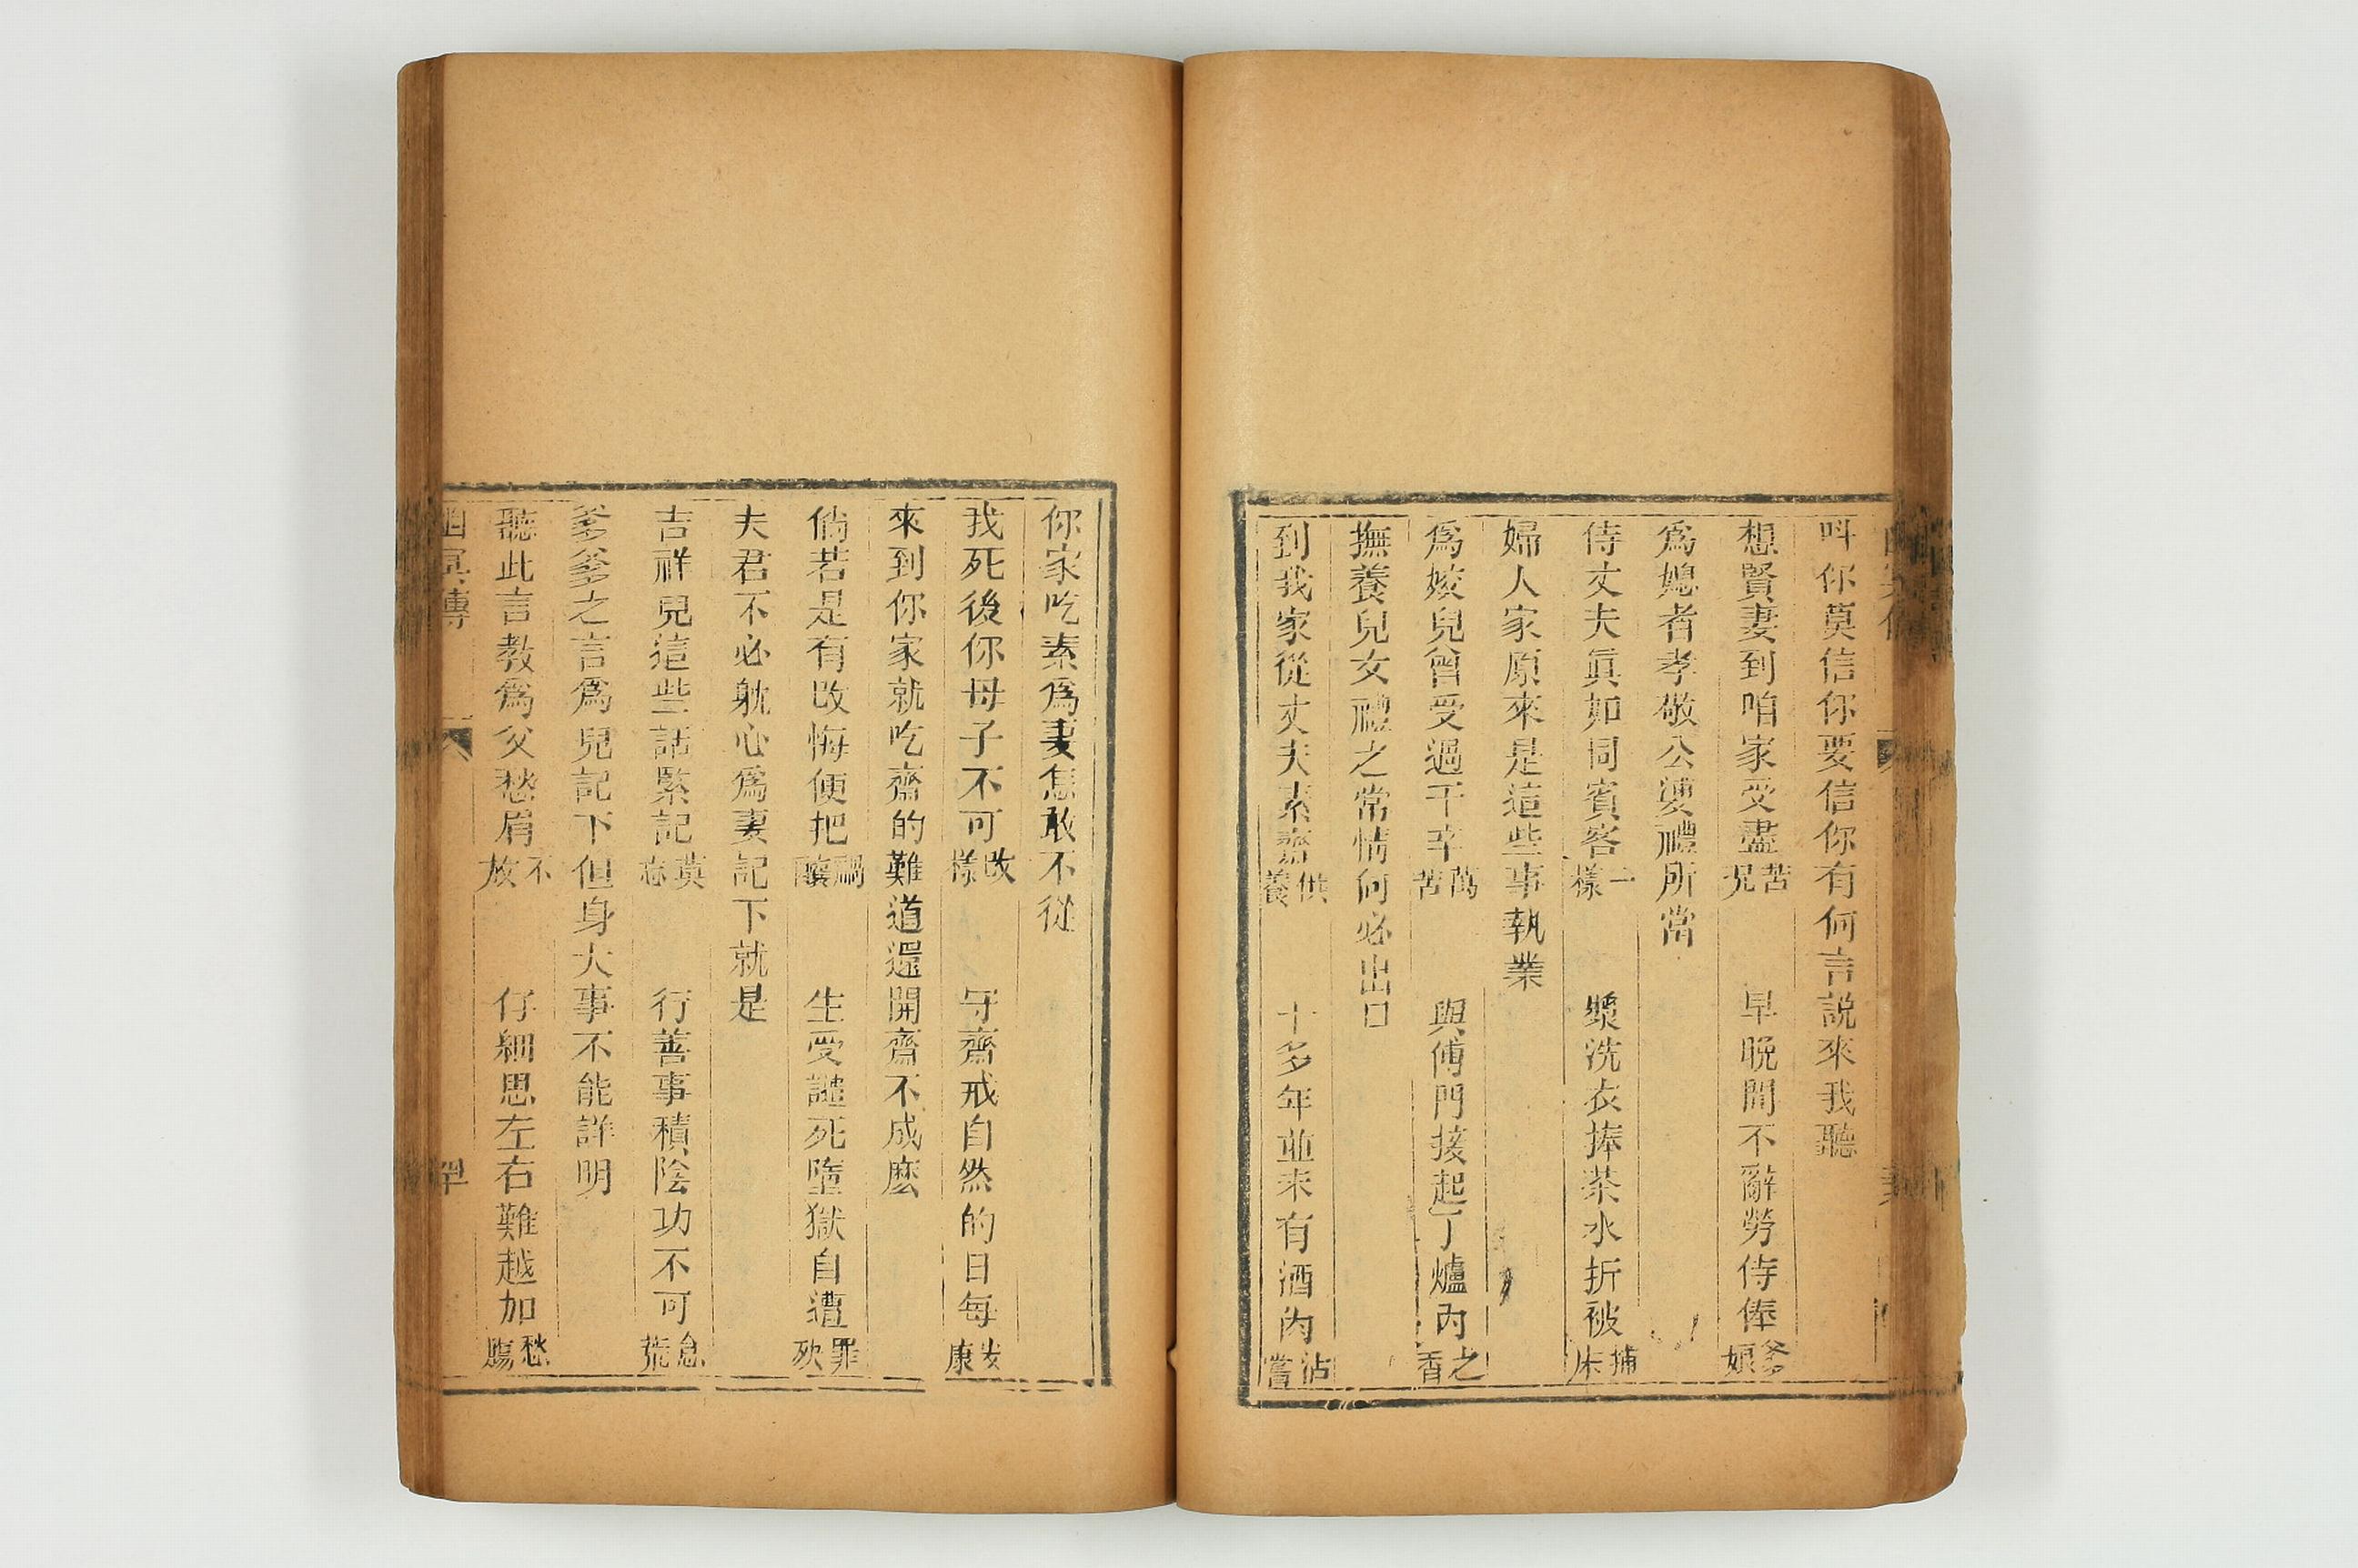 叫你莫信你要信你有何言説來我聽
想賢妻到咱家受盡苦況 早晚間不辭勞侍俸爹娘
爲媳者孝敬公婆禮所當
侍丈夫眞如同賓客一樣 漿洗衣捧茶水折被捕床
婦人家原來是這些事執業
爲姣兒曾受過千辛萬苦 與傅門接起了爐內之香
撫養兒女禮之常情何必出口
到我家從丈夫素齋供養 十多年並未有酒肉沾嘗
你家吃素爲妻怎敢不從
我死後你母子不可改樣 守齋戒自然的日每安康
來到你家就吃齋的難道還開齋不成麽
倘若是有改悔便把禍釀 生受譴死墮獄自遭罪殃
夫君不必躭心爲妻記下就是
吉祥兒這些話緊記莫忘 行善事積陰功不可怠荒
爹爹之言爲兒記下但身大事不能詳明
聽此言教爲父愁眉不放 仔細思左右難越加愁腸
幽冥傳